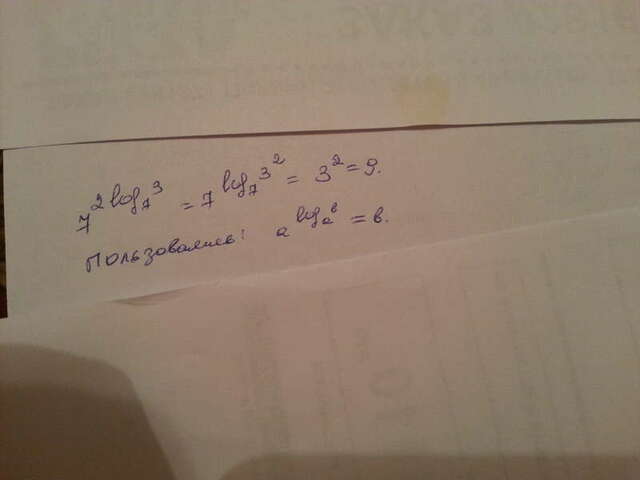 7^{2 log_7 3} = 7^{log_7 3^2} = 3^2 = 9.
Пользовались: a^{log_a в} = в.